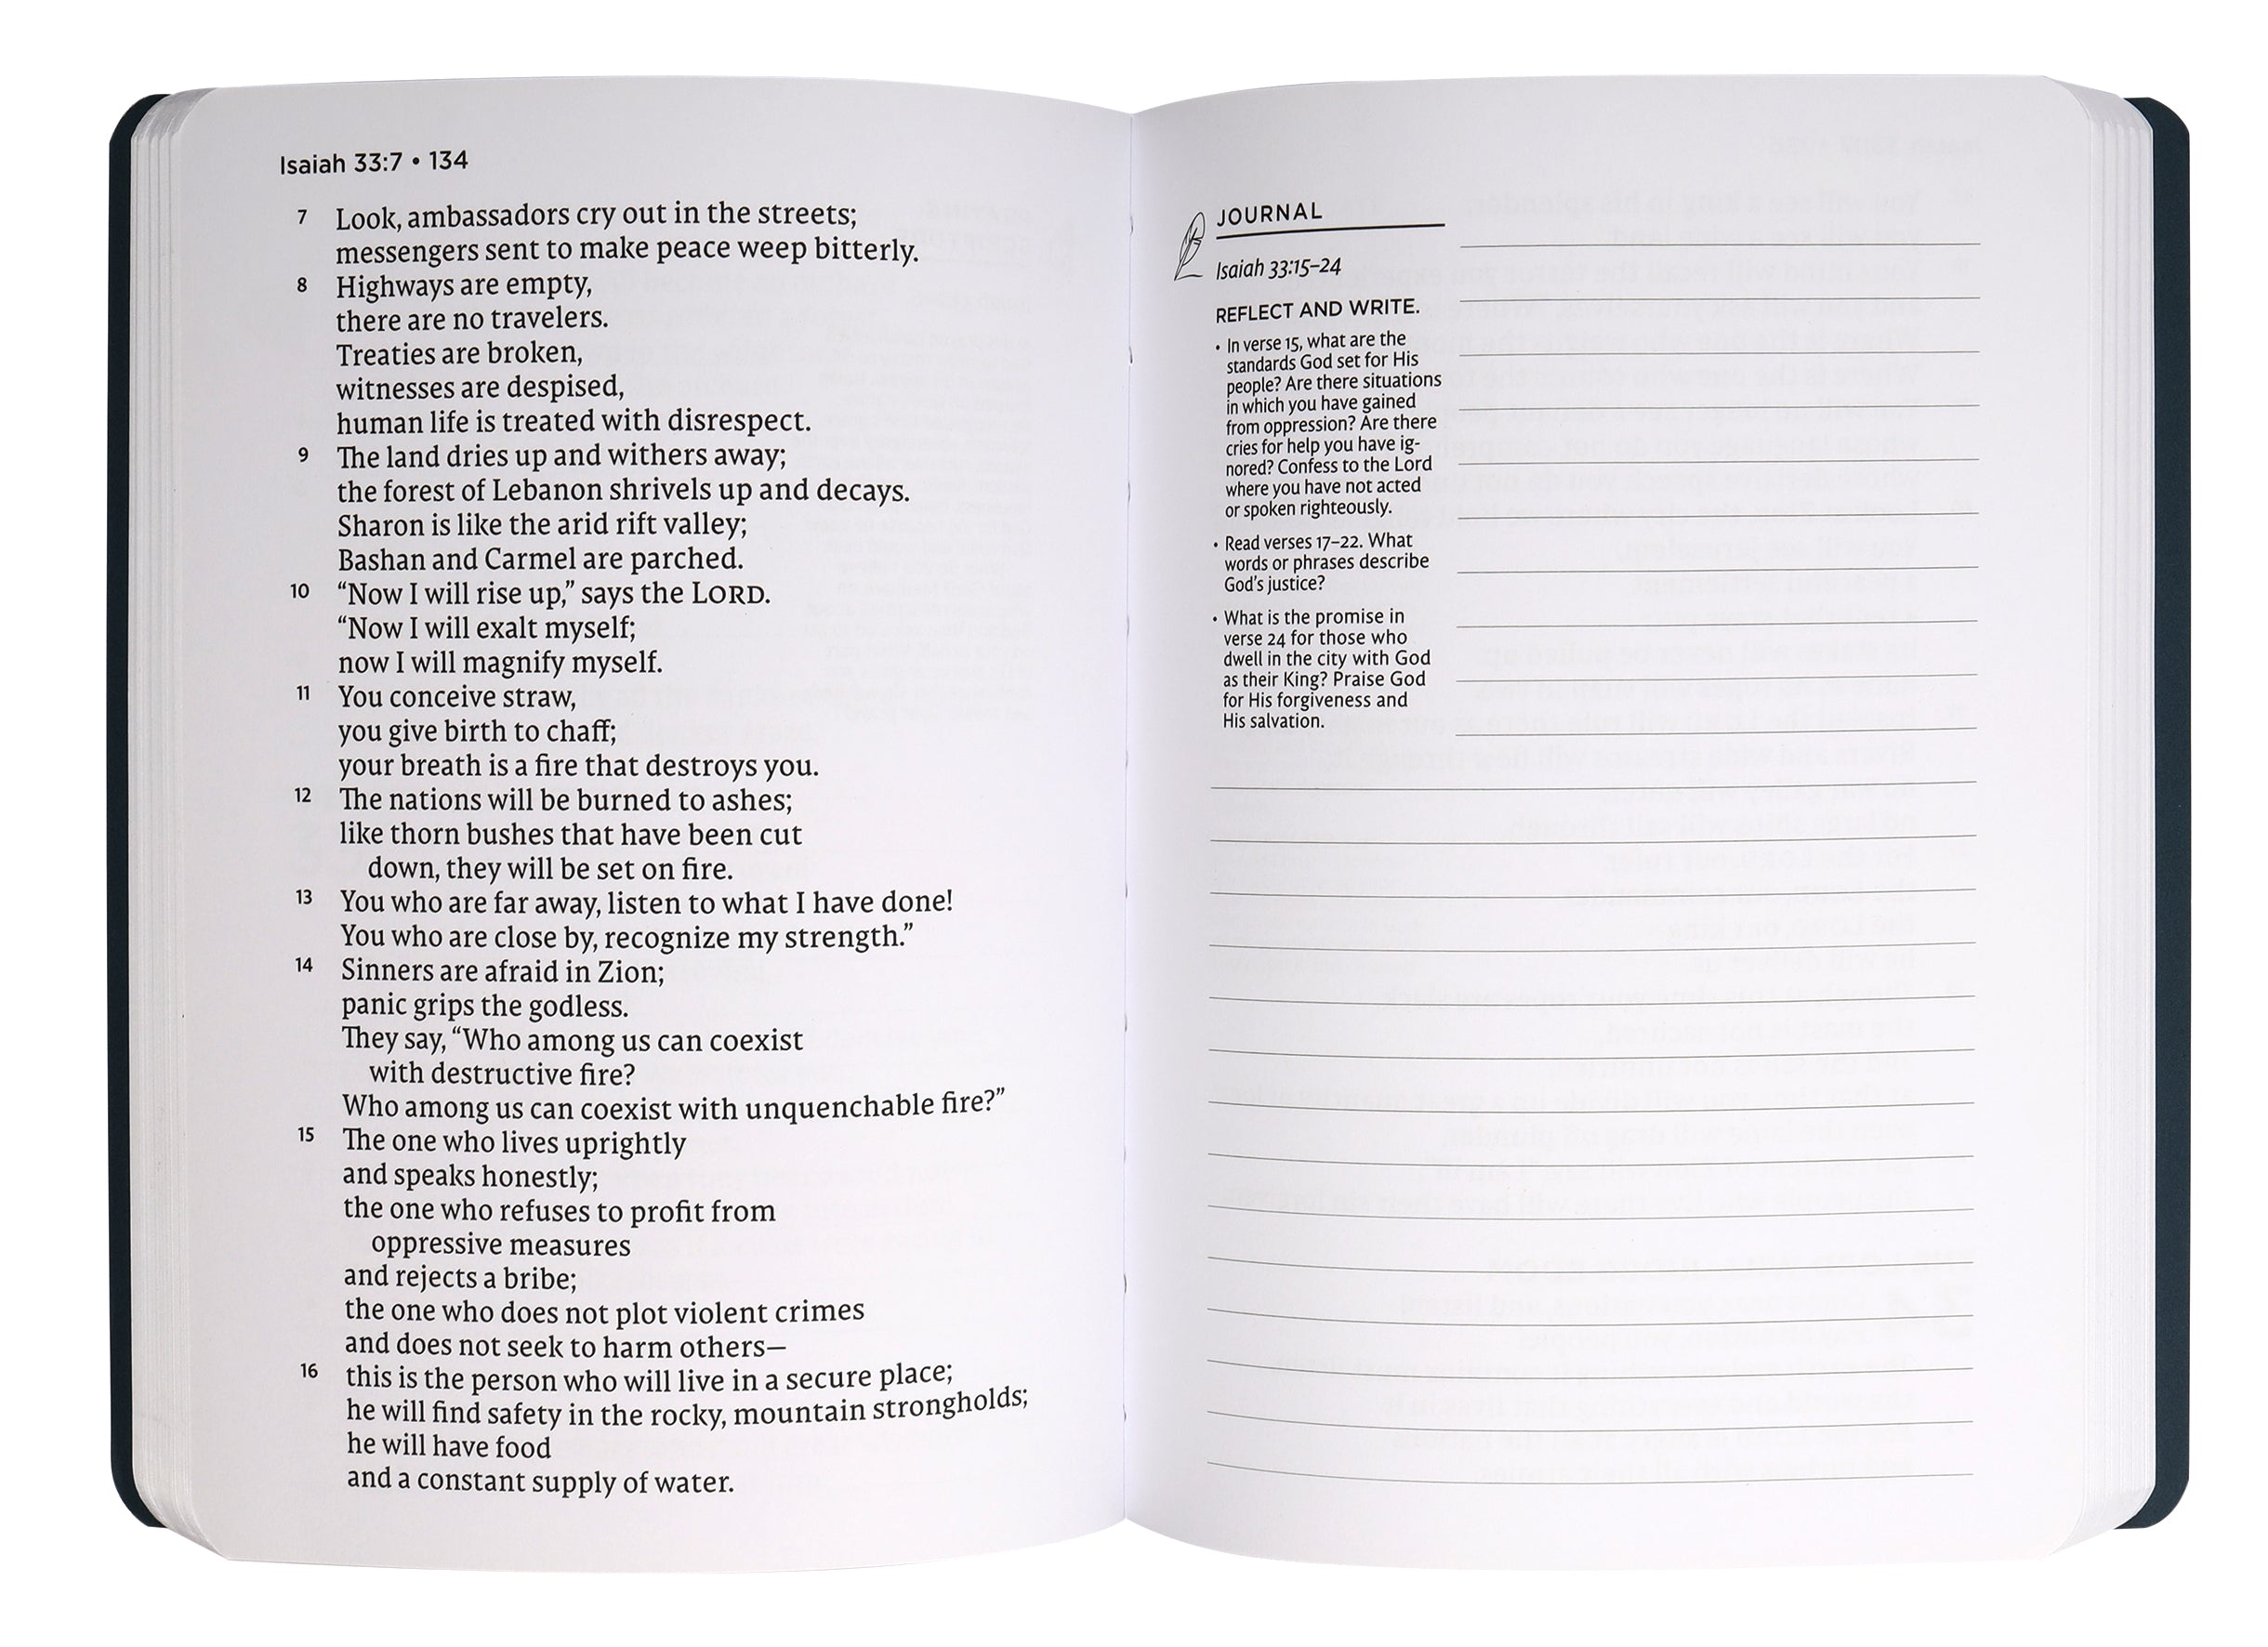 Isaiah 33:7 • 134
7 Look, ambassadors cry out in the streets;
messengers sent to make peace weep bitterly.
8 Highways are empty,
there are no travelers.
Treaties are broken,
witnesses are despised,
human life is treated with disrespect.
9 The land dries up and withers away;
the forest of Lebanon shrivels up and decays.
Sharon is like the arid rift valley;
Bashan and Carmel are parched.
10 “Now I will rise up,” says the LORD.
“Now I will exalt myself;
now I will magnify myself.
11 You conceive straw,
you give birth to chaff;
your breath is a fire that destroys you.
12 The nations will be burned to ashes;
like thorn bushes that have been cut
down, they will be set on fire.
13 You who are far away, listen to what I have done!
You who are close by, recognize my strength.”
14 Sinners are afraid in Zion;
panic grips the godless.
They say, “Who among us can coexist
with destructive fire?
Who among us can coexist with unquenchable fire?”
15 The one who lives uprightly
and speaks honestly;
the one who refuses to profit from
oppressive measures
and rejects a bribe;
the one who does not plot violent crimes
and does not seek to harm others—
16 this is the person who will live in a secure place;
he will find safety in the rocky, mountain strongholds;
he will have food
and a constant supply of water.
JOURNAL
Isaiah 33:15–24
REFLECT AND WRITE.
• In verse 15, what are the
standards God set for His
people? Are there situations
in which you have gained
from oppression? Are there
cries for help you have ig-
nored? Confess to the Lord
where you have not acted
or spoken righteously.
• Read verses 17–22. What
words or phrases describe
God’s justice?
• What is the promise in
verse 24 for those who
dwell in the city with God
as their King? Praise God
for His forgiveness and
His salvation.